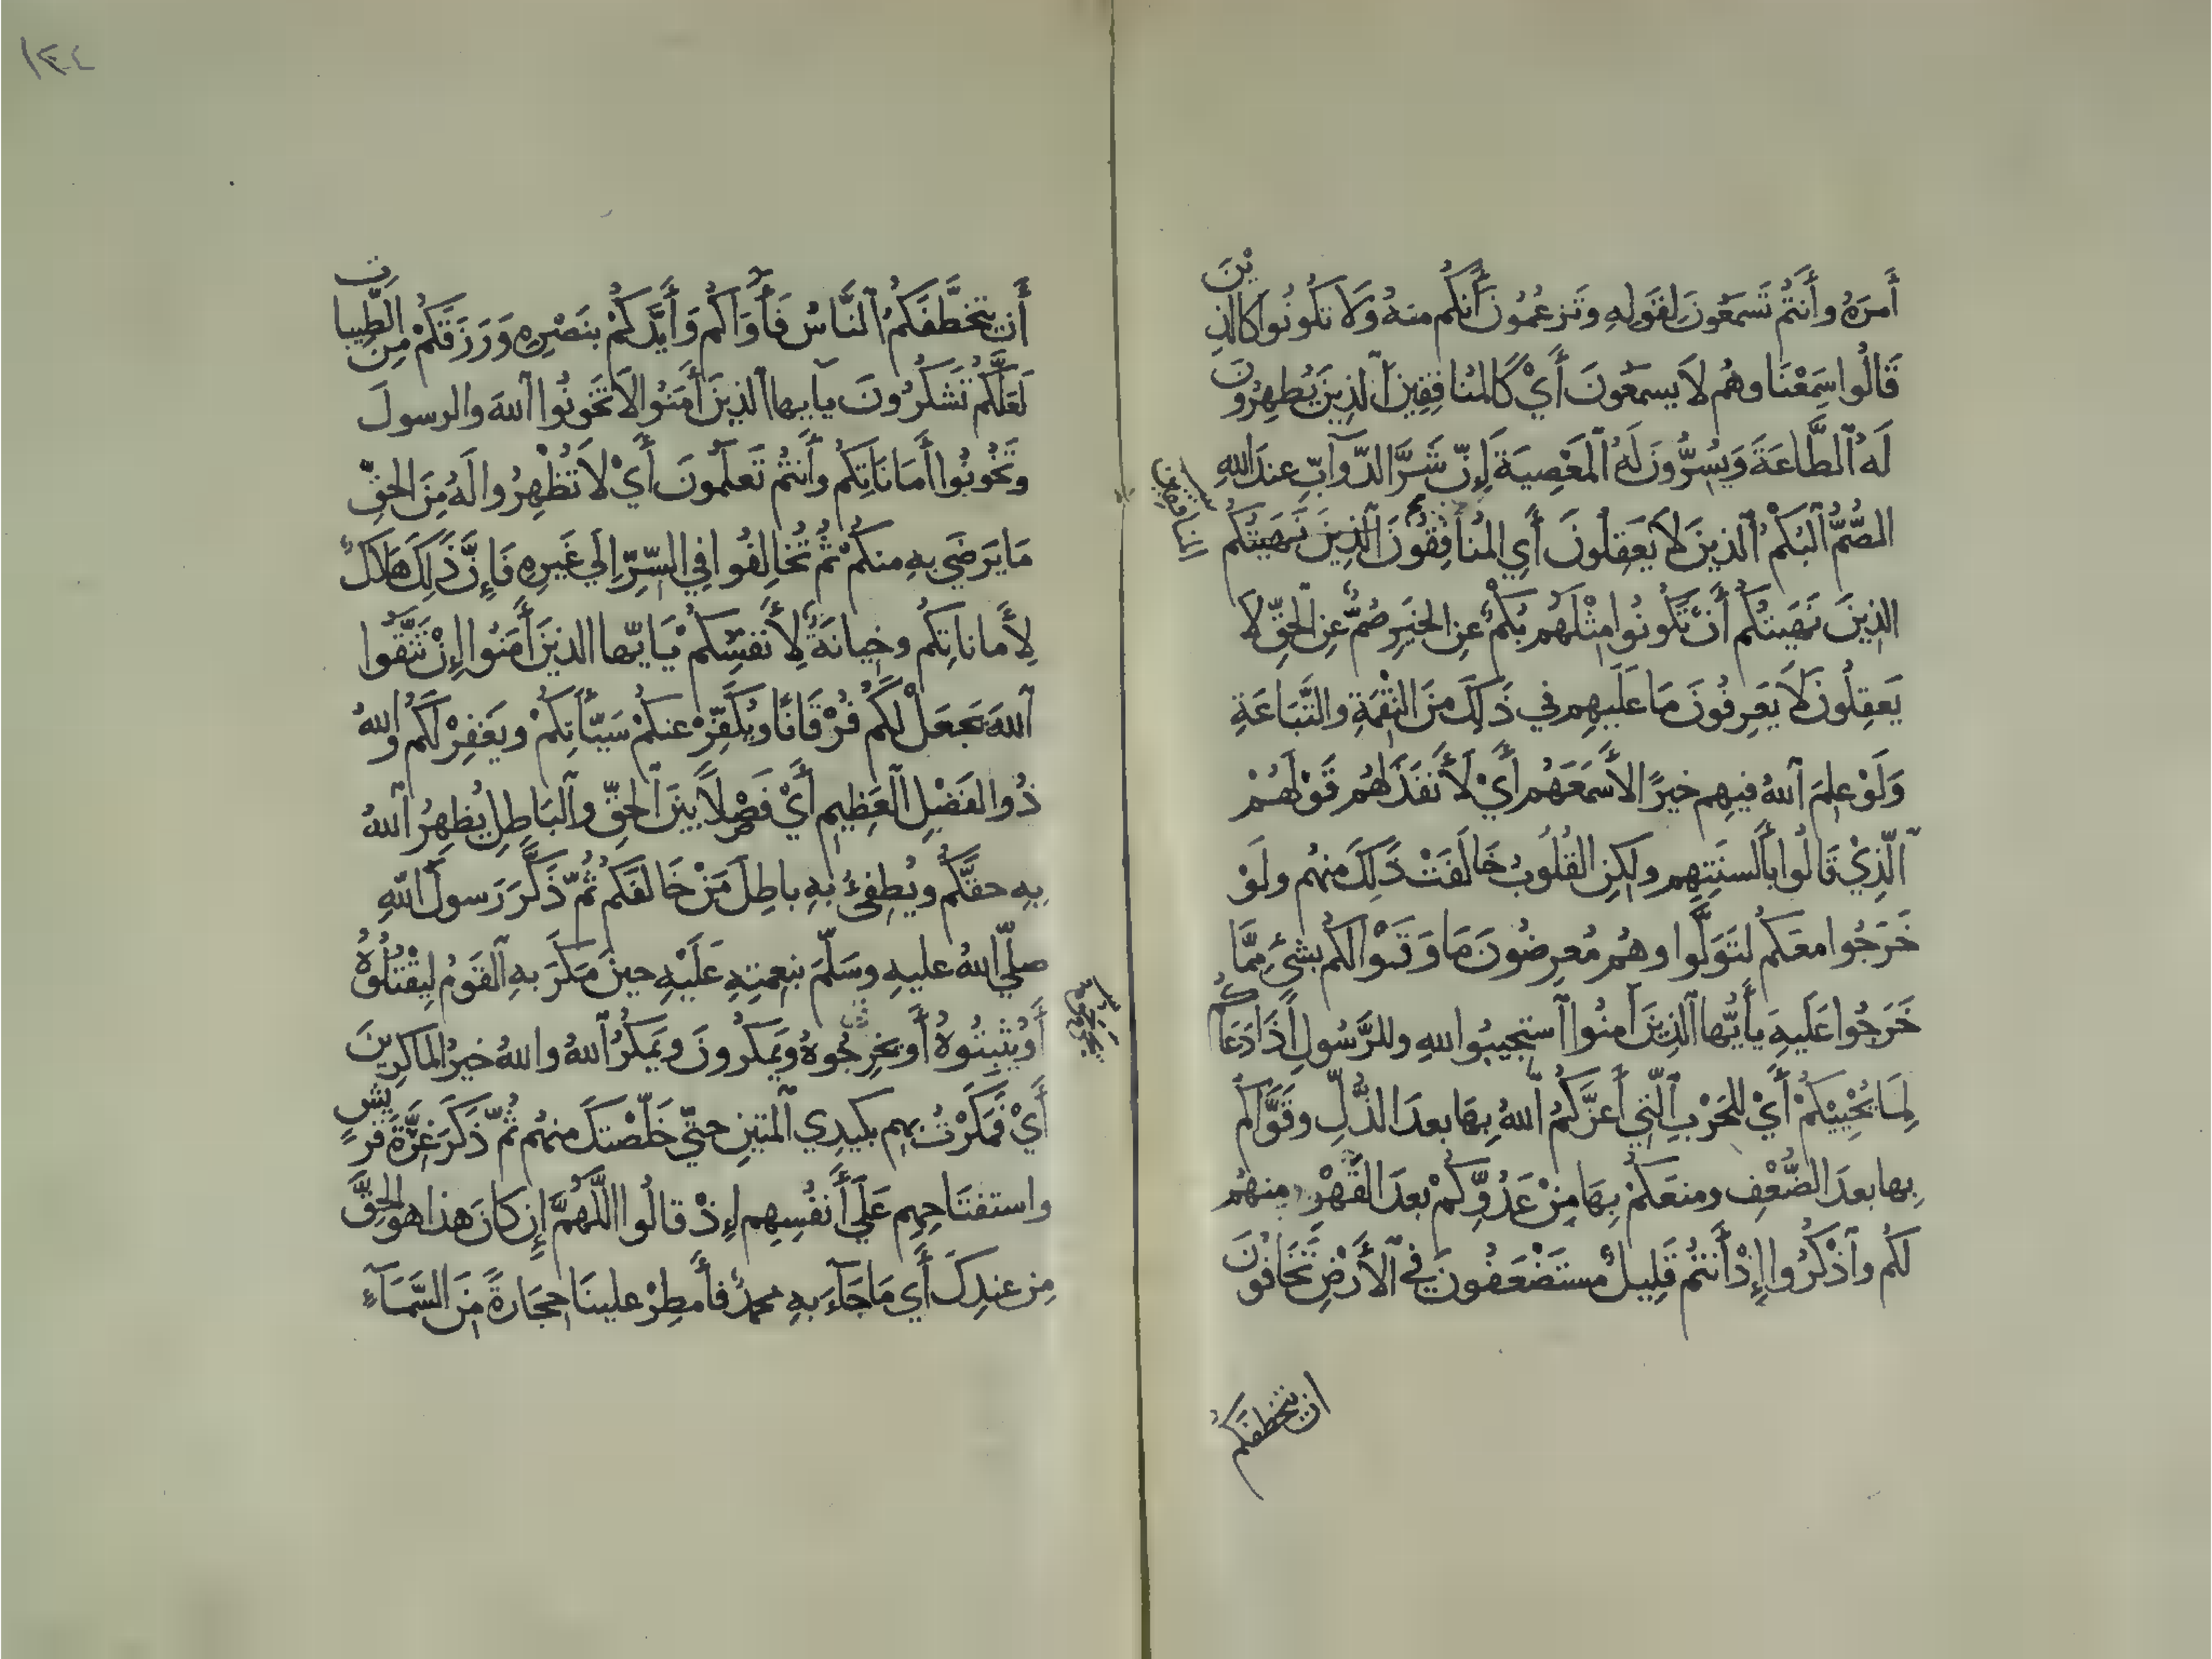 أَمرَهُ وأَنتُم تَسمَعُونَ لِقَولِهِ وتَزعُمُونَ أَنكُم منهُ وَلَا تكُونُوا كالذِينَ
قَالُوا سَمِعْنَا وهُم لَا يسمعُونَ أَيْ كَالمُنافِقِينَ ٱلذِينَ يُظهِرُونَ
لَهُ ٱلطَّاعَةَ وَيُسِرُّونَ لَهُ ٱلمَعْصِيَةَ إِنّ شَرَّ الدّوَآبِّ عندَ اللهِ
الصُّمُّ ٱلبُكْمُ ٱلذينَ لَا يَعقِلُونَ أَيِ المُنافِقُونَ ٱلذِينَ نَهَيتُكُم
الذِينَ نَهَيتُكُم أَن تَكُونُوا مِثْلَهُم بُكْمٌ عنِ الخيرِ صُمٌّ عنِ الحقِّ لَا
يَعقِلُونَ لَا يَعرِفُونَ مَا عَلَيهِم في ذَلِكَ مِنَ النِّقْمَةِ والتَّبَاعَةِ
وَلَوْ علِمَ ٱللهُ فيهِم خيرًا لأَسمَعَهُم أَيْ لَأَنفَذَ لهُم قَوْلَهُمْ
ٱلّذِيْ قَالُوا بأَلسنَتِهِم ولكِنِ القُلُوبُ خَالَفَتْ ذَلِكَ منهُم ولَوْ
خَرَجُوا معَكُم لتَوَلَّوا وهُم مُعرِضُونَ مَا وَفَوْا لكُم بشَيْءٍ مِمَّا
خَرَجُوا عَلَيهِ يأَيُّها ٱلذِينَ آمنُوا ٱستجيبُوا للهِ وللرَّسُولِ إِذَا دَعَاكُم
لِمَا يُحْيِيْكُمْ أَيْ للحَرْبِ ٱلّتِي أَعزَّكُمُ ٱللهُ بِهَا بعدَ الذُّلِّ وقَوَّاكُم
بِها بعدَ الضُّعْفِ ومنعَكُمْ بِهَا مِنْ عَدُوِّكُمْ بعدَ القَهْرِ منهُم
لكُم وٱذْكُرُوا إِذْ أَنتُم قَلِيلٌ مُستَضْعَفُونَ في ٱلأَرْضِ تَخَافُونَ
ان يتخطفكم
١٣٤
أَن يتخَطَّفَكُمُ ٱلنَّاسُ فَأَوَاكُم وَأَيَّدَكُمْ بنَصْرِهِ وَرَزَقَكُمْ مِنَ الطَّيباتِ
لَعَلَّكُم تَشكُرُونَ يآيها ٱلذِينَ أَمَنُوا لَا تَخُونُوا ٱللهَ والرسولَ
وتَخُونُوا أَمَانَاتِكُم وأَنتُم تَعلَمُونَ أَيْ لَا تُظْهِرُوا لَهُ مِنَ الحقِّ
مَا يَرضَى بهِ منكُم ثُمّ تُخالِفُوا في السِّرِّ إِلي غَيرِهِ فَإِنَّ ذَلِكَ هَلَاكٌ
لِأَماناتِكُم وخِيانَةٌ لِأَنفسِكُمْ يَايّها الذينَ أَمَنُوا إِنْ تَتَّقُوا
ٱللهَ يَجعَلْ لكُم فُرْقَانًا ويُكَفِّرْ عنكُمْ سَيّئَاتِكُمْ ويَغفِرْ لَكُم واللهُ
ذُوالفَضْلِ ٱلعَظِيمِ أَيْ فَصْلًا بَيْنَ ٱلحقِّ وٱلبَاطِلِ يُظهِرُ ٱللهُ
بهِ حقَّكُم ويُطفِئُ بهِ باطِلَ مَنْ خَالفَكُم ثُمّ ذَكَّرَ رَسولَ اللهِ
صلّي اللهُ عليهِ وسَلّمَ بنِعمتِهِ عَلَيْهِ حينَ مَكَرَ بهِ ٱلقَومُ لِيقْتُلُوهُ
أَو يُثبِتُوهُ أَو يُخرِجُوهُ ويَمكُرُونَ ويَمكُرُ ٱللهُ واللهُ خيرُ الماكرِينَ
أَيْ فَمَكَرْتُ بهِم بكَيدِي ٱلمَتينِ حتّي خَلّصْتكَ منهُم ثُمّ ذَكَرَ غِرَّةَ قرَيشٍ
واستفتَاحهِم عَلَي أَنفُسِهِم إِذْ قَالُوا اللّهُمَّ إِن كَانَ هذا هوَ الحقَّ
مِن عندِكَ أَي مَا جَآءَ بهِ محمدٌ فأَمطِرْ علينَا حِجَارةً مِنَ السَّمَآءِ